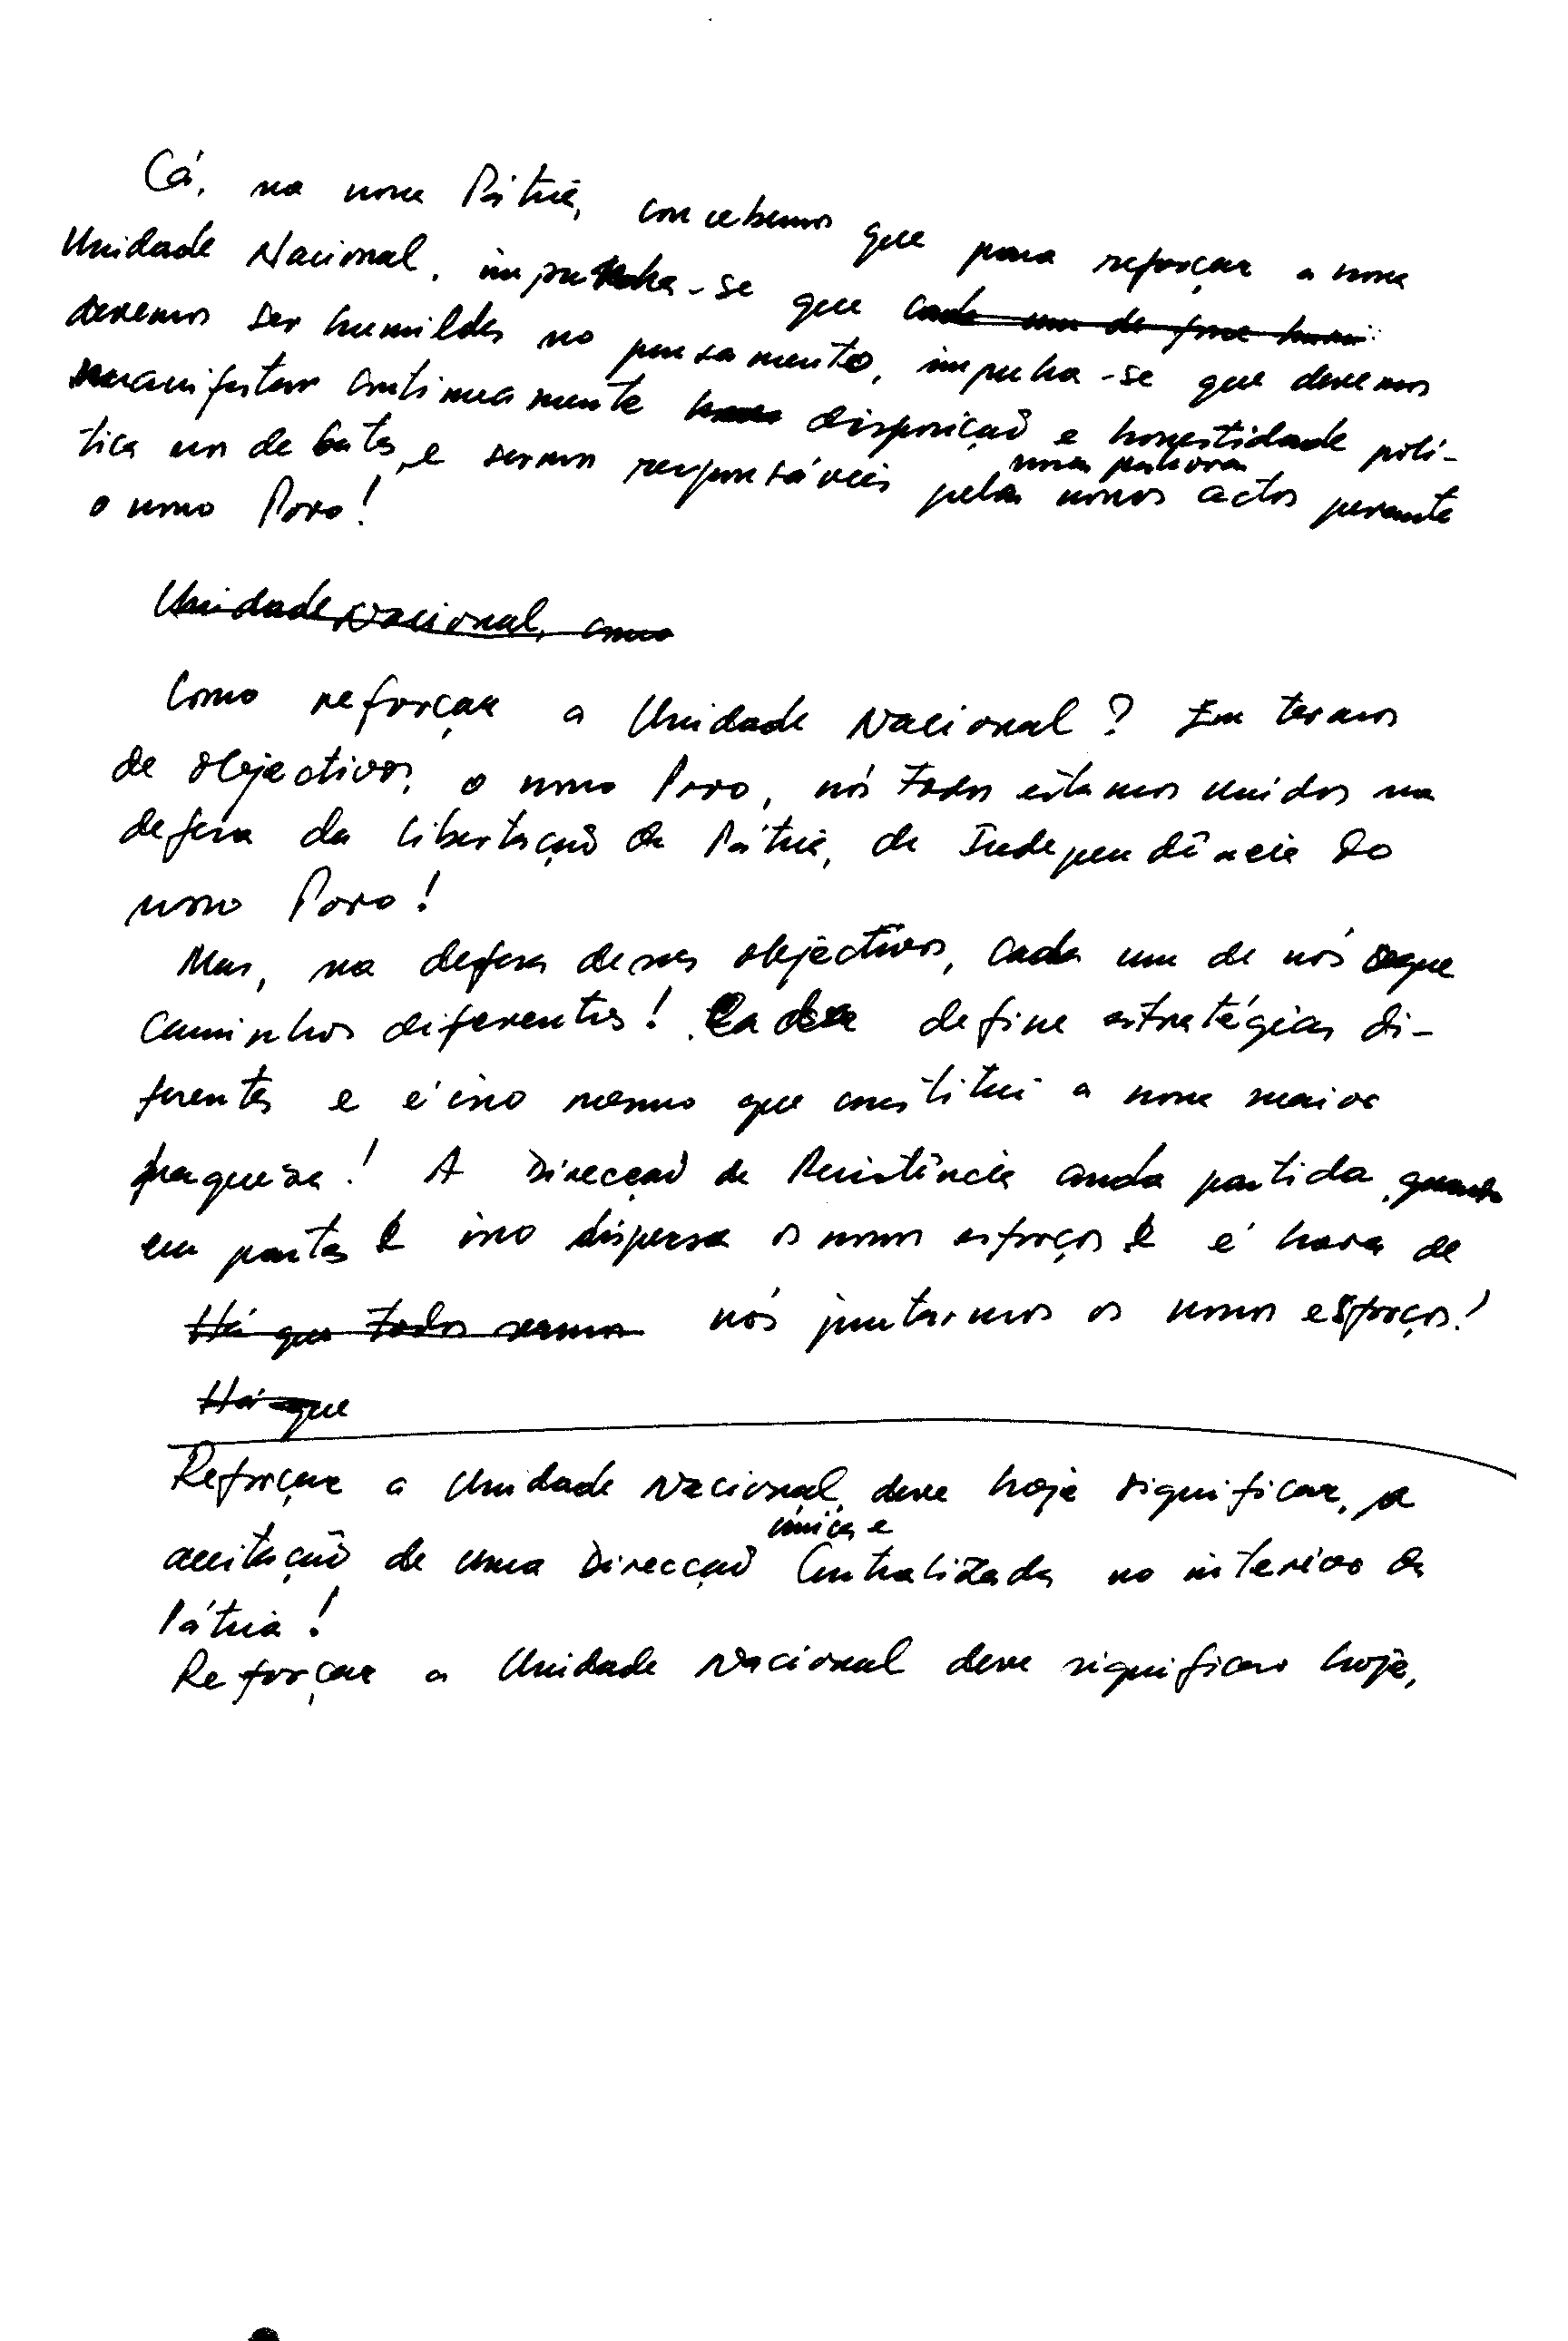 Cá, na nossa Pátria, concebemos que para reforçar a nossa
Unidade Nacional, impunha-se que cada um de fosse humi
devemos ser humildes no pensamento, impunha-se que devemos
manifestar continuamente disposição e honestidade polí-
tica nos debates, e sermos responsáveis pelas nossos actos perante
nossas palavras
o nosso Povo!
Unidade Nacional, como
Como reforçar a Unidade Nacional? Em termos
de objectivos, o nosso Povo, nós todos estamos unidos na
defesa da libertação da Pátria, da Independência do
nosso Povo!
Mas, na defesa desses objectivos, cada um de nós segue
caminhos diferentes! Cada define estratégias di-
ferentes e é isso mesmo que constitui a nossa maior
fraqueza! A Direcção da Resistência anda partida
em partes e isso dispersa os nossos esforços e é hora de
Há que todos sermos nós juntarmos os nossos esforços!
Há que
Reforçar a Unidade Nacional, deve hoje significar, a
única e
aceitação de uma Direcção Centralizada no interior da
Pátria!
Reforçar a Unidade Nacional deve significar hoje,